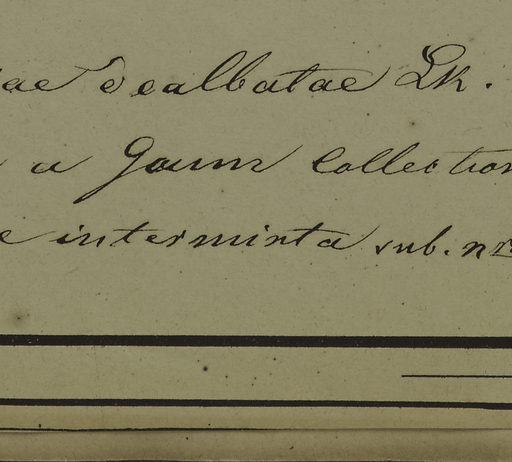 ae dealbatae Lk.
a Gaum Collection
e interminta sub. nr